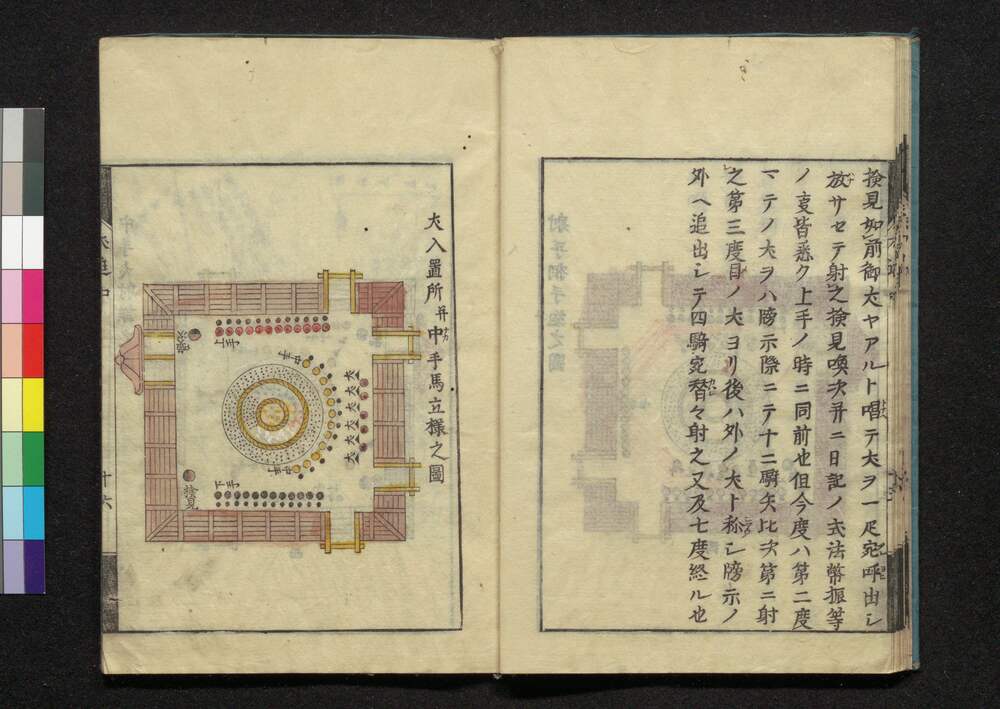 検見如前御犬ヤアルト唱テ犬ヲ一疋宛呼出シ
放サセテ射之検見喚次并ニ日記ノ式法幣振等
ノ夏皆悉ク上手ノ時ニ同前也但今度ハ第二度
マテノ犬ヲハ牓示際ニテ十二騎矢比次第ニ射
之第三度目ノ犬ヨリ後ハ外ノ犬ト称シ牓示ノ
外ヘ追出シテ四騎宛替々射之又及七度終ル也
犬入置所并中手馬立様之圖
上手
中手
犬犬犬犬犬犬
中手
下手
検見
犬追
十六